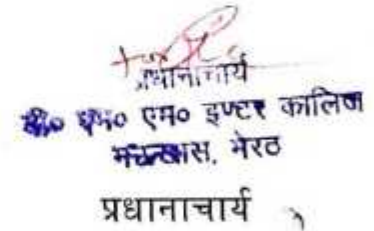 प्रधानाचार्य
एम० इण्टर कालिज
मेरठ
प्रधानाचार्य